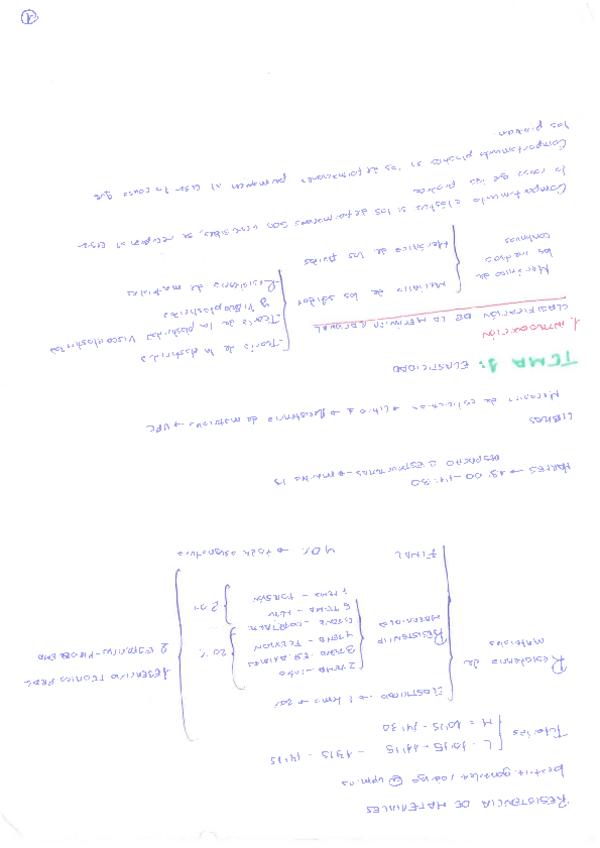 RESISTENCIA DE MATERIALES
@ upm.es
Tutorías
L - 10:15 - 11:15 - 13:15 - 14:15
M = 10:15 - 14:30
Resistencia de materiales
Elasticidad → 1 tema → 20%
RESISTENCIA MATERIALES
2 TEMA - INTRO
3 TEMA - ES. AXIALES
4 TEMA - FLEXIÓN
5 TEMA - CORTANTE
6 TEMA -
7 TEMA - TORSIÓN
20%
20%
FINAL 40% → toda asignatura
2 EXAMENES - PROBLEMA
MARTES → 13:00 - 14:30
DESPACHO ESTRUCTURAS
LIBROS
de materiales → UPC
TEMA 1: ELASTICIDAD
1. INTRODUCCIÓN
CLASIFICACIÓN DE LA MECÁNICA RACIONAL
Mecánica de los medios continuos
Mecánica de los sólidos
- Teoría de la elasticidad
- Teoría de la plasticidad Viscoelasticidad y Viscoplasticidad
- Resistencia de materiales
Mecánica de los fluidos
Comportamiento elástico si las deformaciones son reversibles, se recuperan al cesar
la causa que las produce
Comportamiento plástico si las deformaciones permanecen al cesar la causa que
las producen.
1